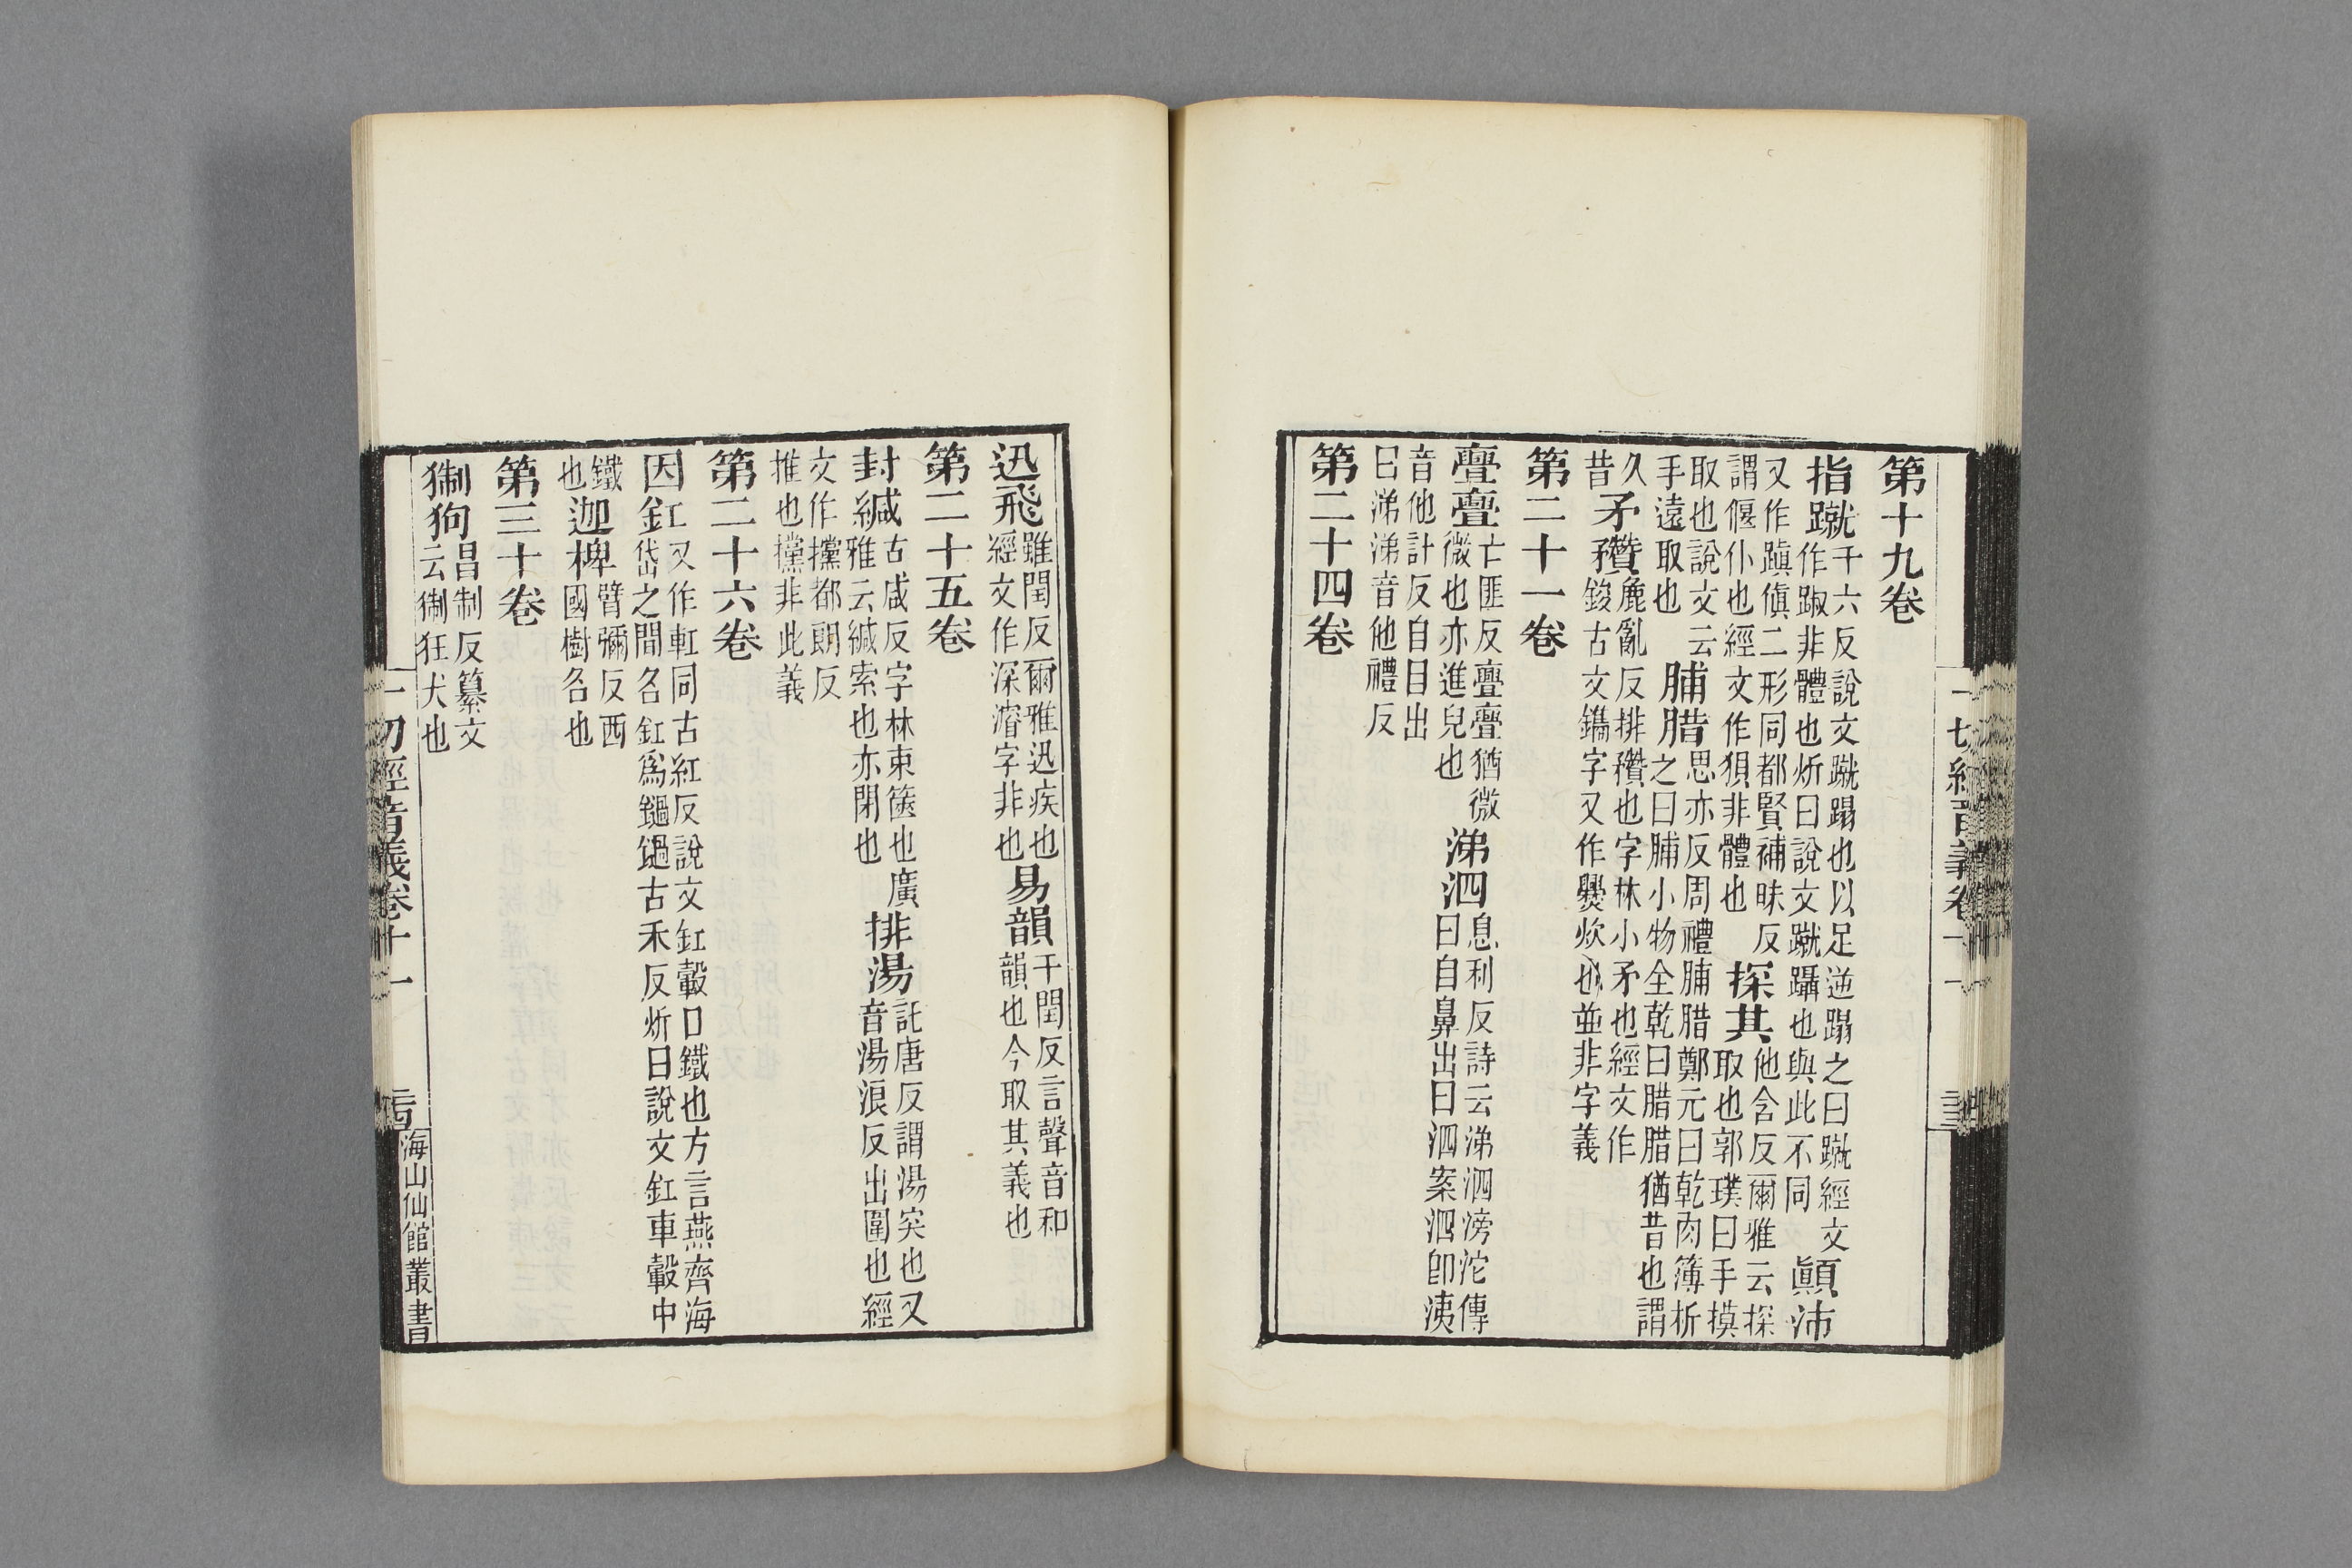 第十九卷
指蹴千六反說文蹴蹋也以足逆蹋之曰蹴經文
作踧非體也炘曰說文蹴躡也與此不同顚沛
又作蹎傎二形同都賢補昧反
謂偃仆也經文作狽非體也探其他含反爾雅云探
取也郭璞曰手摸
取也說文云
手遠取也脯腊思亦反周禮脯腊鄭元曰乾肉簿析
之曰脯小物全乾曰腊腊猶昔也謂
久
昔矛穳麁亂反排穳也字林小矛也經文作
鋑古文鑴字又作爨炊也並非字義
第二十一卷
亹亹亡匪反亹亹猶微
微也亦進皃也涕泗息利反詩云涕泗滂沱傳
曰自鼻出曰泗案泗卽洟
音他計反自目出
曰涕涕音他禮反
第二十四卷
迅飛雖閏反爾雅迅疾也
經文作深濬字非也易韻干閏反言聲音和
韻也今取其義也
第二十五卷
封緘古咸反字林束篋也廣
雅云緘索也亦閉也排湯託唐反謂湯突也又
音湯浪反出圍也經
文作攩都朗反
推也攩非此義
第二十六卷
因釭又作軖同古紅反說文釭轂口鐵也方言燕齊海
岱之間名釭爲鏂鍋古禾反炘曰說文釭車轂中
鐵
也迦椑臂彌反西
國樹名也
第三十卷
猘狗昌制反纂文
云猘狂犬也
一切經音義卷十一
海山仙館叢書